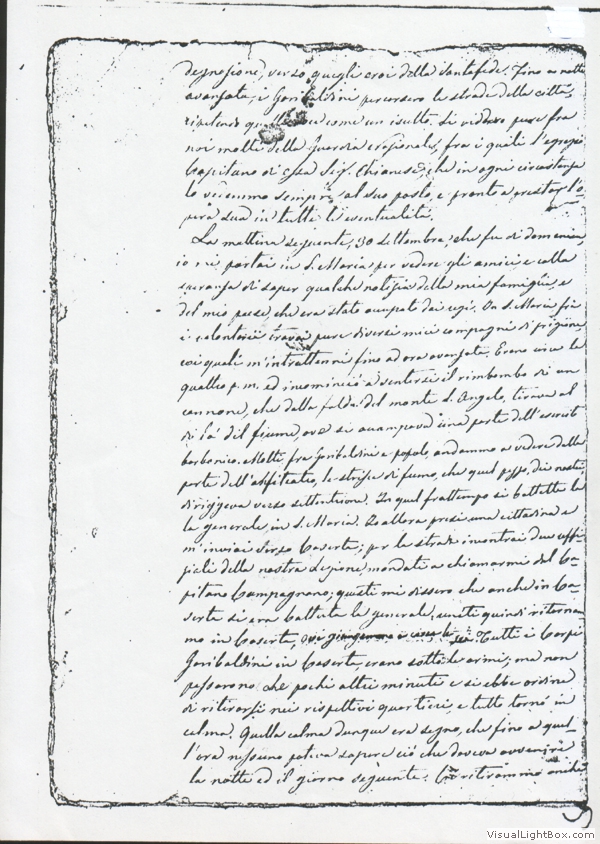 degnazione, verso quegli eroi della Santafede. Fino a notte
avanzata, i Garibaldini percorsero le strade della città,
ripetendo come un insulto. Si videro pure fra
noi molti della Guardia Nazionale, fra i quali l'egregio
Capitano di essa Sig. Chianese, che in ogni circostanza
lo vedemmo sempre al suo posto, e pronto a prestar l'o-
pera sua in tutte le eventualità.
La mattina seguente, 30 settembre, che fu di domenica,
io mi portai in S. Maria per vedere gli amici, e colla
speranza di saper qualche notizia della mia famiglia, e
del mio paese, che era stato occupato dai regi. In S. Maria fra
i volontarii trovai pure diversi miei compagni di prigione
coi quali m'intrattenni fino ad ora avanzata. Erano circa le
quattro p. m. ed incominciò a sentirsi il rimbombo di un
cannone, che dalla falda del monte S. Angelo, tirava al
di là del fiume, ove si accampava una parte dell'esercito
borbonico. Molti fra Garibaldini e popolo, andammo a vedere dalla
parte dell'Anfiteatro, le striscie di fumo, che quel pezzo, dei nostri
dirigeva verso settentrione. In quel frattempo si battette la
la generale, in S. Maria. Io allora presi una cittadina e
m'inviai verso Caserta; per la strada incontrai due uffi-
ziali della nostra Legione, mandati a chiamarmi dal Ca-
pitano Campagnano; questi mi dissero che anche in Ca-
serta si era battuta la generale; uniti quindi ritorna-
mo in Caserta, Tutti i Corpi
Garibaldini in Caserta, erano sotto le armi; ma non
passarono che pochi altri minuti e si ebbe ordine
di ritirarsi nei rispettivi quartieri, e tutto tornò in
calma. Quella calma dunque era segno, che fino a quel-
l'ora nessuno poteva sapere ciò che doveva avvenire
la notte ed il giorno seguente. ritirammo anche
VisualLightBox.com